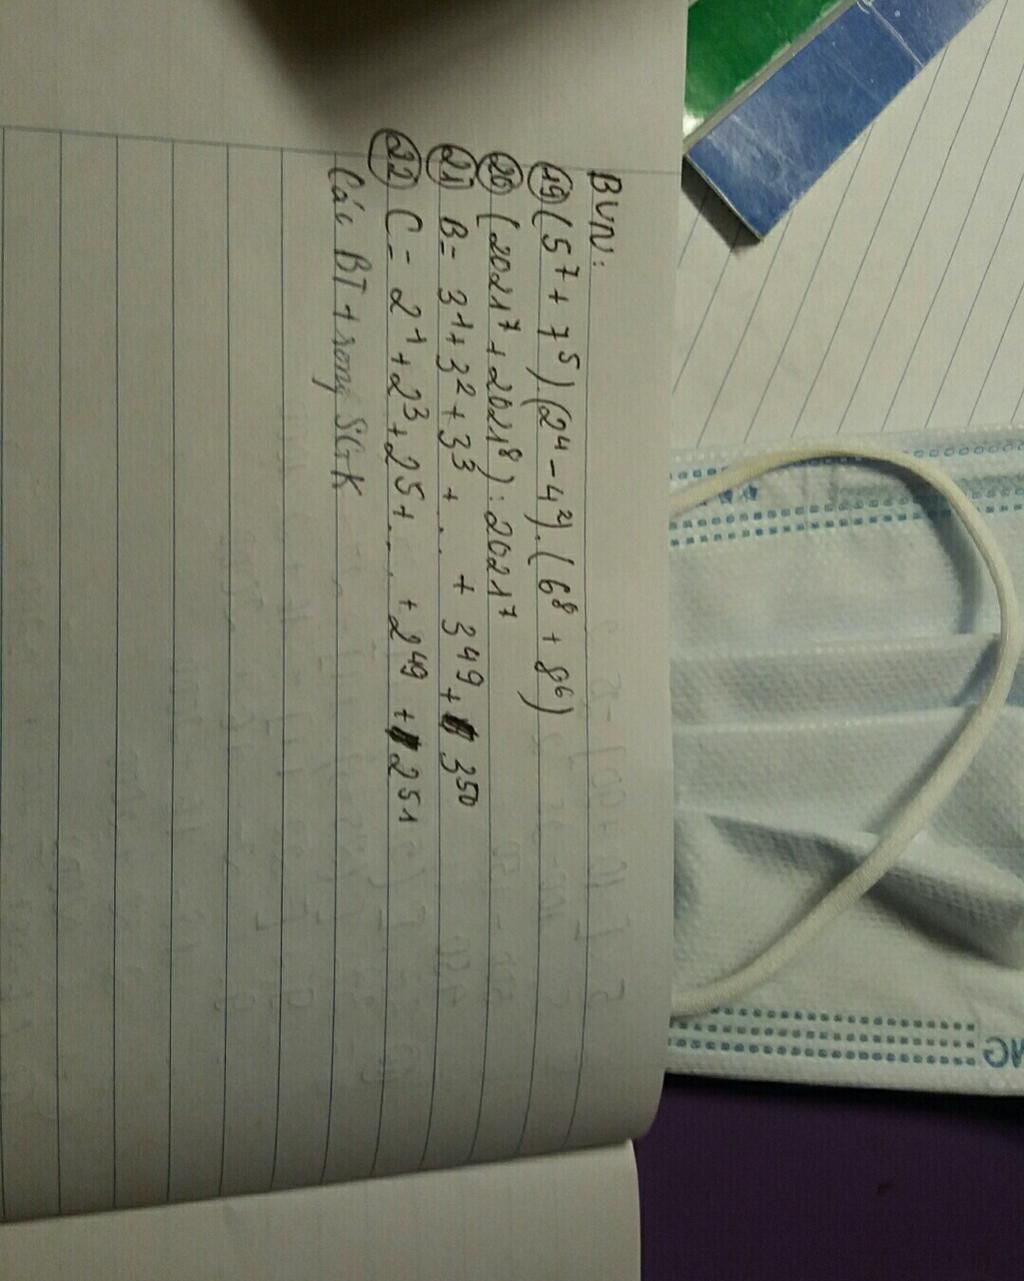 BVN:
19 (5⁷ + 7⁵).(2⁴ - 4²).(6⁸ + 8⁶)
20 (2021⁷ + 2021⁸) : 2021⁷
21 B = 3¹ + 3² + 3³ + ... + 3⁴⁹ + 3⁵⁰
22 C = 2¹ + 2³ + 2⁵ + ... + 2⁴⁹ + 2⁵¹
Các BT trong SGK